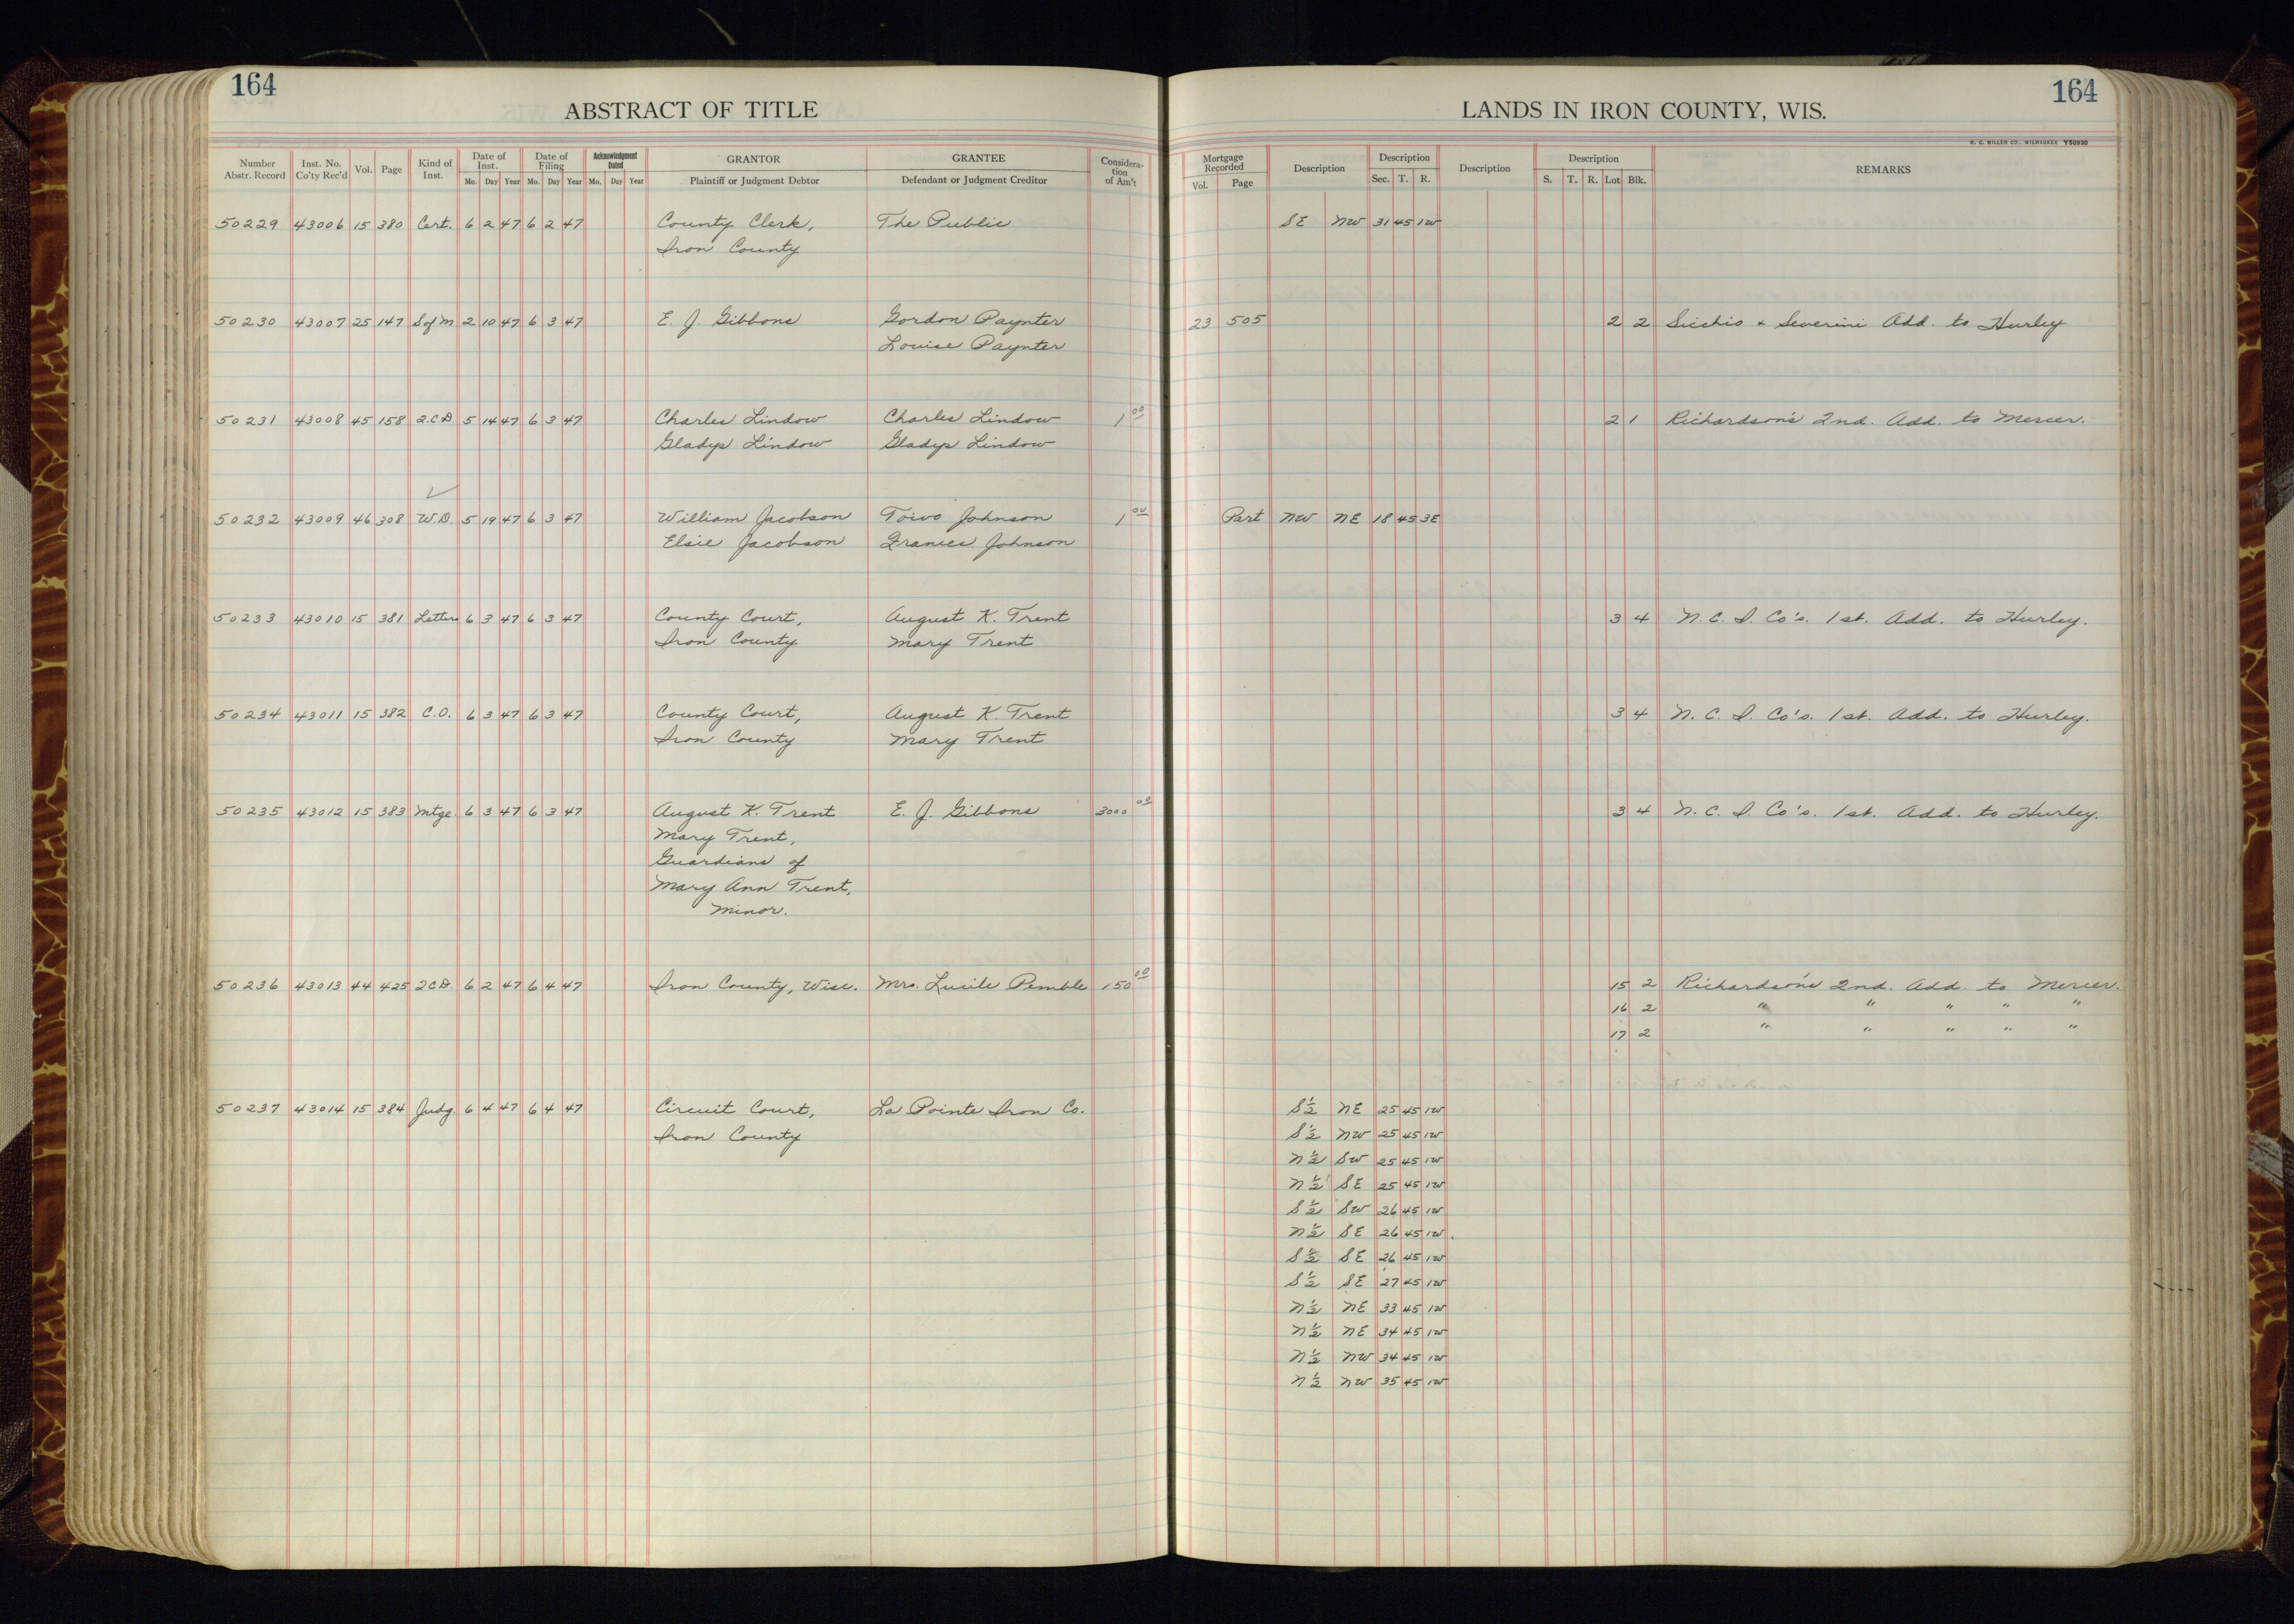 164
164
ABSTRACT OF TITLE
LANDS IN IRON COUNTY, WIS.
H. C. MILLER CO., MILWAUKEE Y50930
Number Abstr. Record Inst. No. Co'ty Rec'd Vol. Page Kind of Inst. Date of Inst. Mo. Day Year Date of Filing Mo. Day Year Acknowledgment Dated Mo. Day Year GRANTOR Plaintiff or Judgment Debtor GRANTEE Defendant or Judgment Creditor Considera-tion of Am't Mortgage Recorded Vol. Page Description Description Sec. T. R. Description Description S. T. R. Lot Blk. REMARKS
50229 43006 15 380 Cert. 6 2 47 6 2 47 County Clerk, The Public SE NW 31 45 1W
Iron County
50230 43007 25 147 S of M 2 10 47 6 3 47 E. J. Gibbons Gordon Paynter 23 505 2 2 Sicchio & Severini Add. to Hurley
Louise Paynter
50231 43008 45 158 2.C.D. 5 14 47 6 3 47 Charles Lindow Charles Lindow 1 00 2 1 Richardson's 2nd. Add. to Mercer.
Gladys Lindow Gladys Lindow
50232 43009 46 308 W.D. 5 19 47 6 3 47 William Jacobson Toivo Johnson 1 00 Part NW NE 18 45 3E
Elsie Jacobson Frances Johnson
50233 43010 15 381 Letters 6 3 47 6 3 47 County Court, August K. Trent 3 4 N. C. I. Co's. 1st. Add. to Hurley.
Iron County Mary Trent
50234 43011 15 382 C.O. 6 3 47 6 3 47 County Court, August K. Trent 3 4 N. C. I. Co's. 1st. Add. to Hurley.
Iron County Mary Trent
50235 43012 15 383 Mtge. 6 3 47 6 3 47 August K. Trent E. J. Gibbons 3000 00 3 4 N. C. I. Co's. 1st. Add. to Hurley.
Mary Trent,
Guardians of
Mary Ann Trent,
Minor.
50236 43013 44 425 2CD. 6 2 47 6 4 47 Iron County, Wisc. Mrs. Lucile Pemble 150 00 15 2 Richardson's 2nd. Add. to Mercer.
16 2 " " " " "
17 2 " " " " "
50237 43014 15 384 Judg. 6 4 47 6 4 47 Circuit Court, La Pointe Iron Co. S½ NE 25 45 1W
Iron County S½ NW 25 45 1W
N½ SW 25 45 1W
N½ SE 25 45 1W
S½ SW 26 45 1W
N½ SE 26 45 1W.
S½ SE 26 45 1W
S½ SE 27 45 1W
N½ NE 33 45 1W
N½ NE 34 45 1W
N½ NW 34 45 1W
N½ NW 35 45 1W